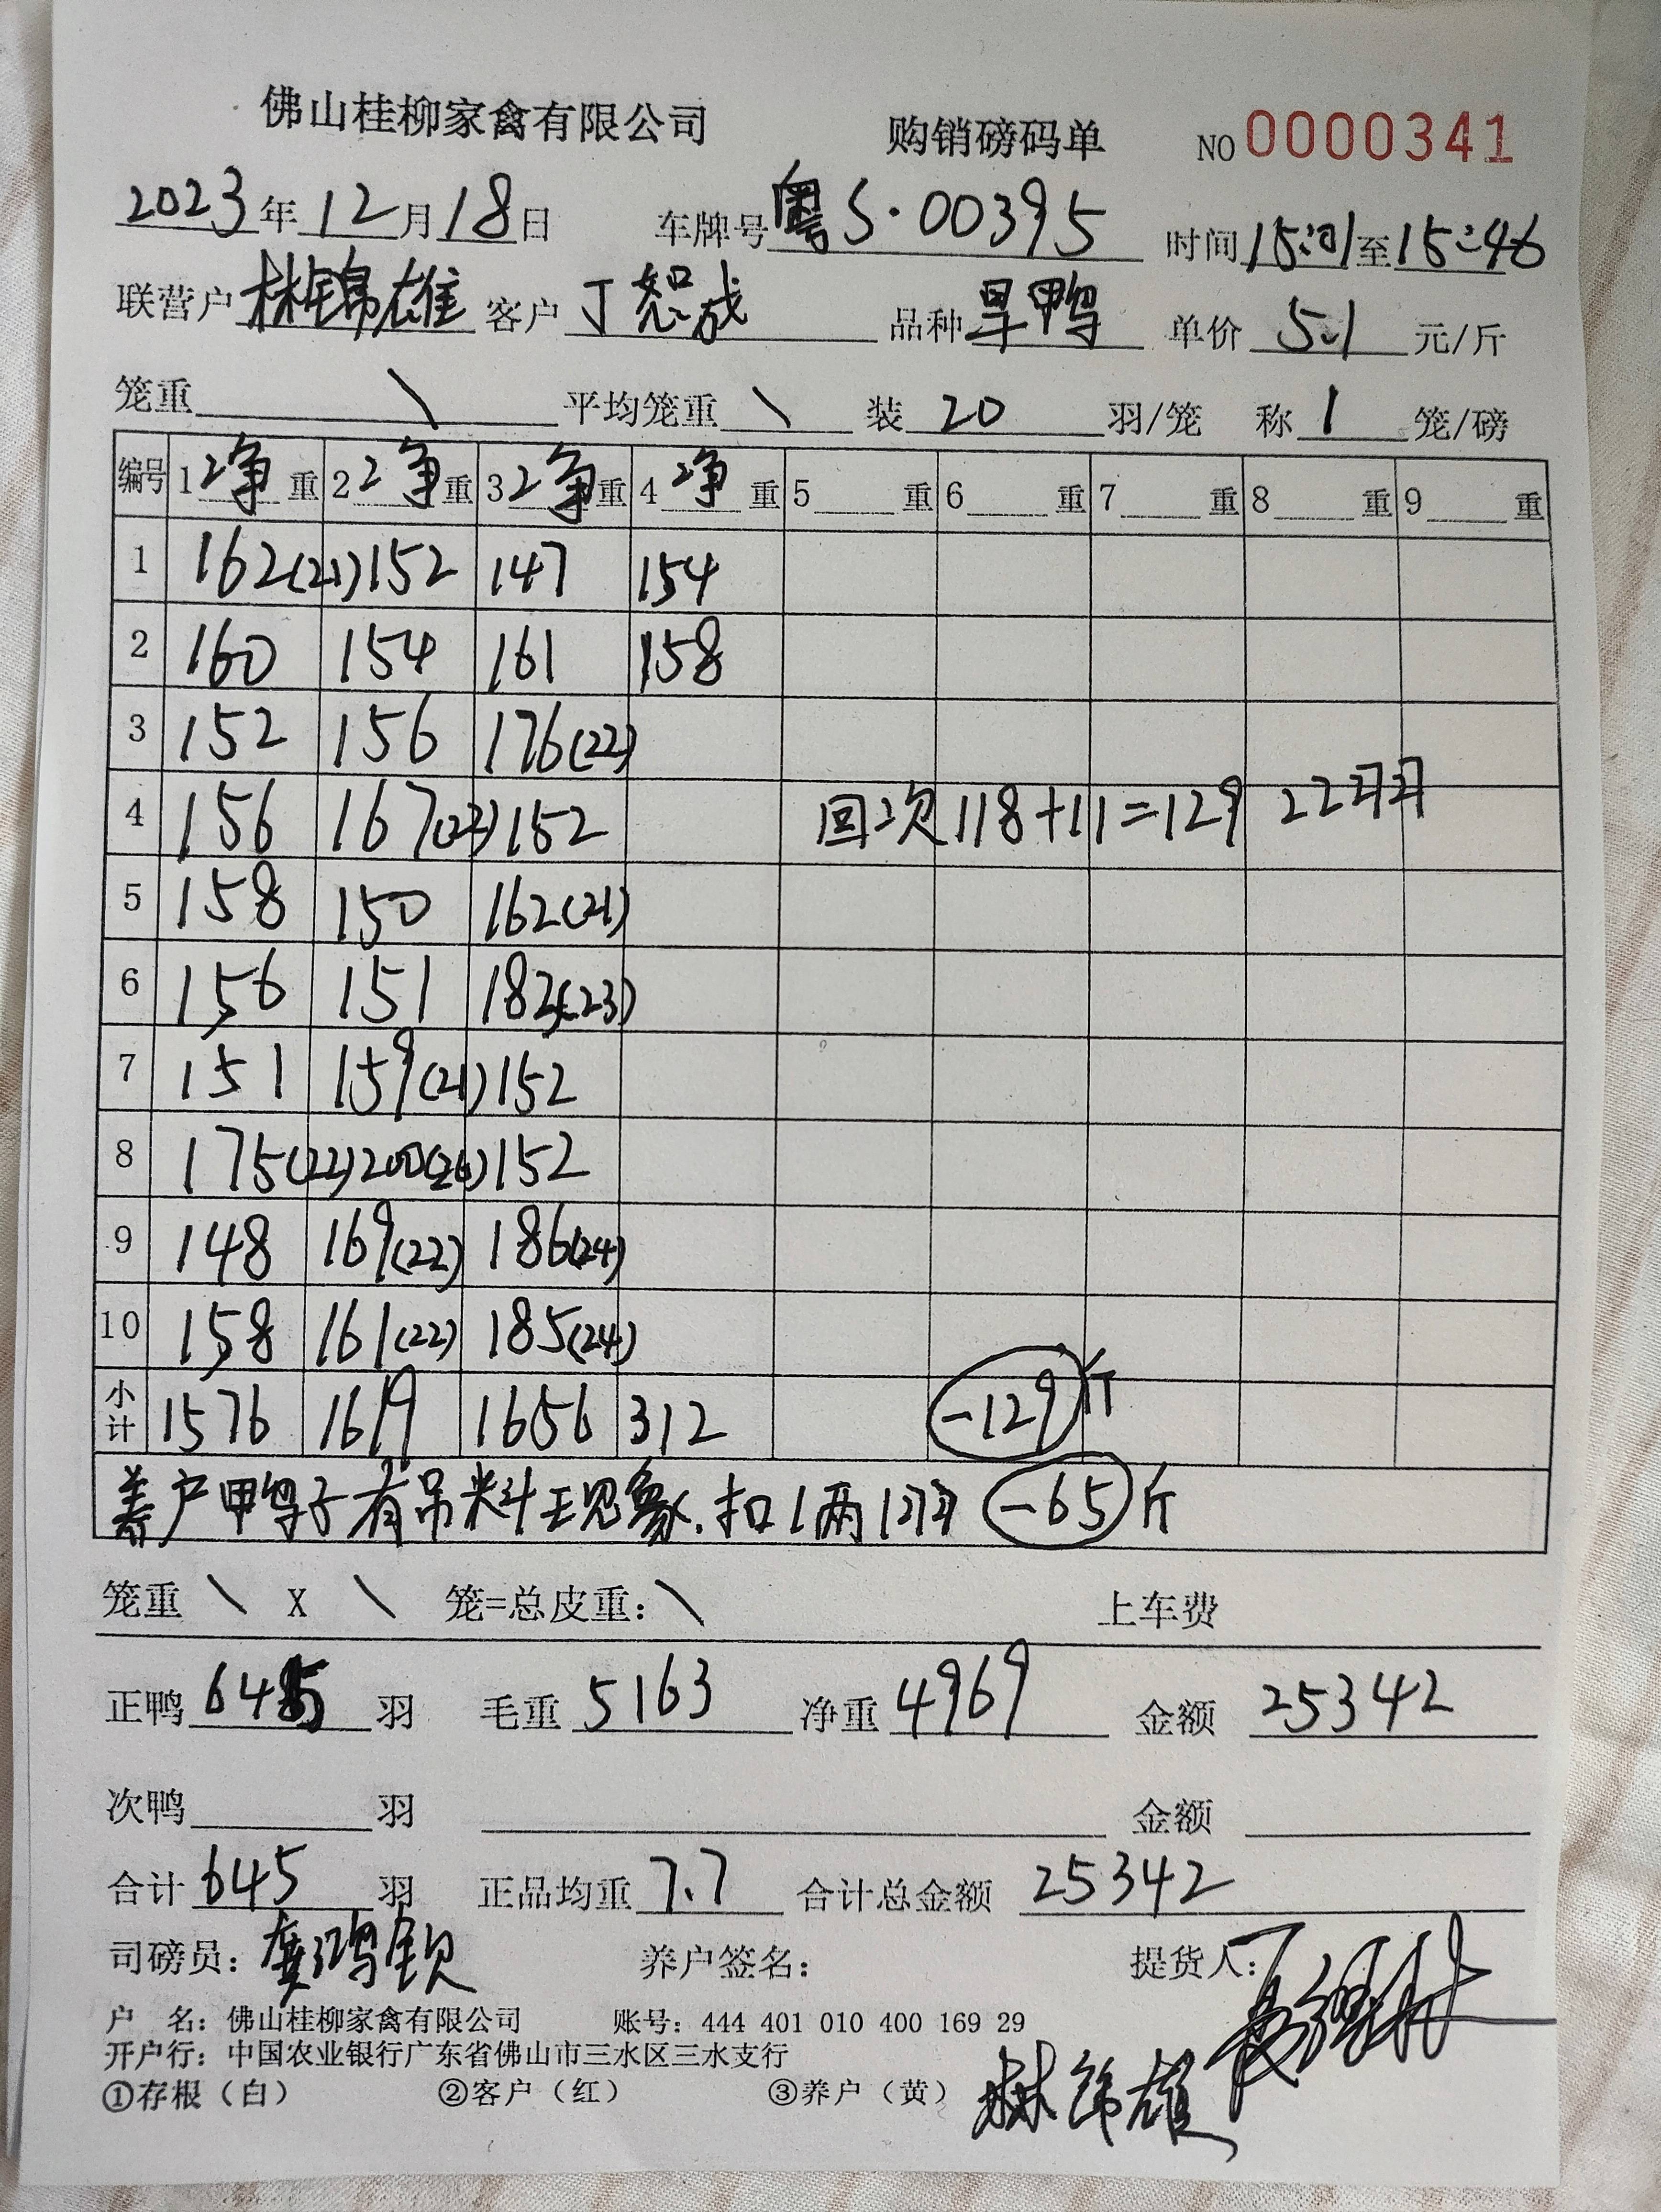 佛山桂柳家禽有限公司 购销磅码单 NO 0000341
2023年12月18日 车牌号 粤S·00395 时间 15:01 至 15:46
联营户 林锦雄 客户 丁恕成 品种 旱鸭 单价 5.1 元/斤
笼重 \ 平均笼重 \ 装 20 羽/笼 称 1 笼/磅
编号 1 净 重 2 净 重 3 净 重 4 净 重 5 重 6 重 7 重 8 重 9 重
1 162(21) 152 147 154
2 160 154 161 158
3 152 156 176(22)
4 156 167(22) 152 回次118+11=129 22羽
5 158 150 162(21)
6 156 151 182(23)
7 151 159(21) 152
8 175(22) 200(26) 152
9 148 169(22) 186(24)
10 158 161(22) 185(24)
小计 1576 1619 1656 312 -129斤
养户鸭子有吊料现象.扣1两1羽 -65斤
笼重 \ X \ 笼=总皮重: \ 上车费
正鸭 645 羽 毛重 5163 净重 4969 金额 25342
次鸭 羽 金额
合计 645 羽 正品均重 7.7 合计总金额 25342
司磅员: 龚鸿钦 养户签名: 提货人:
户 名: 佛山桂柳家禽有限公司 账号: 444 401 010 400 169 29
开户行: 中国农业银行广东省佛山市三水区三水支行
①存根（白） ②客户（红） ③养户（黄） 林锦雄